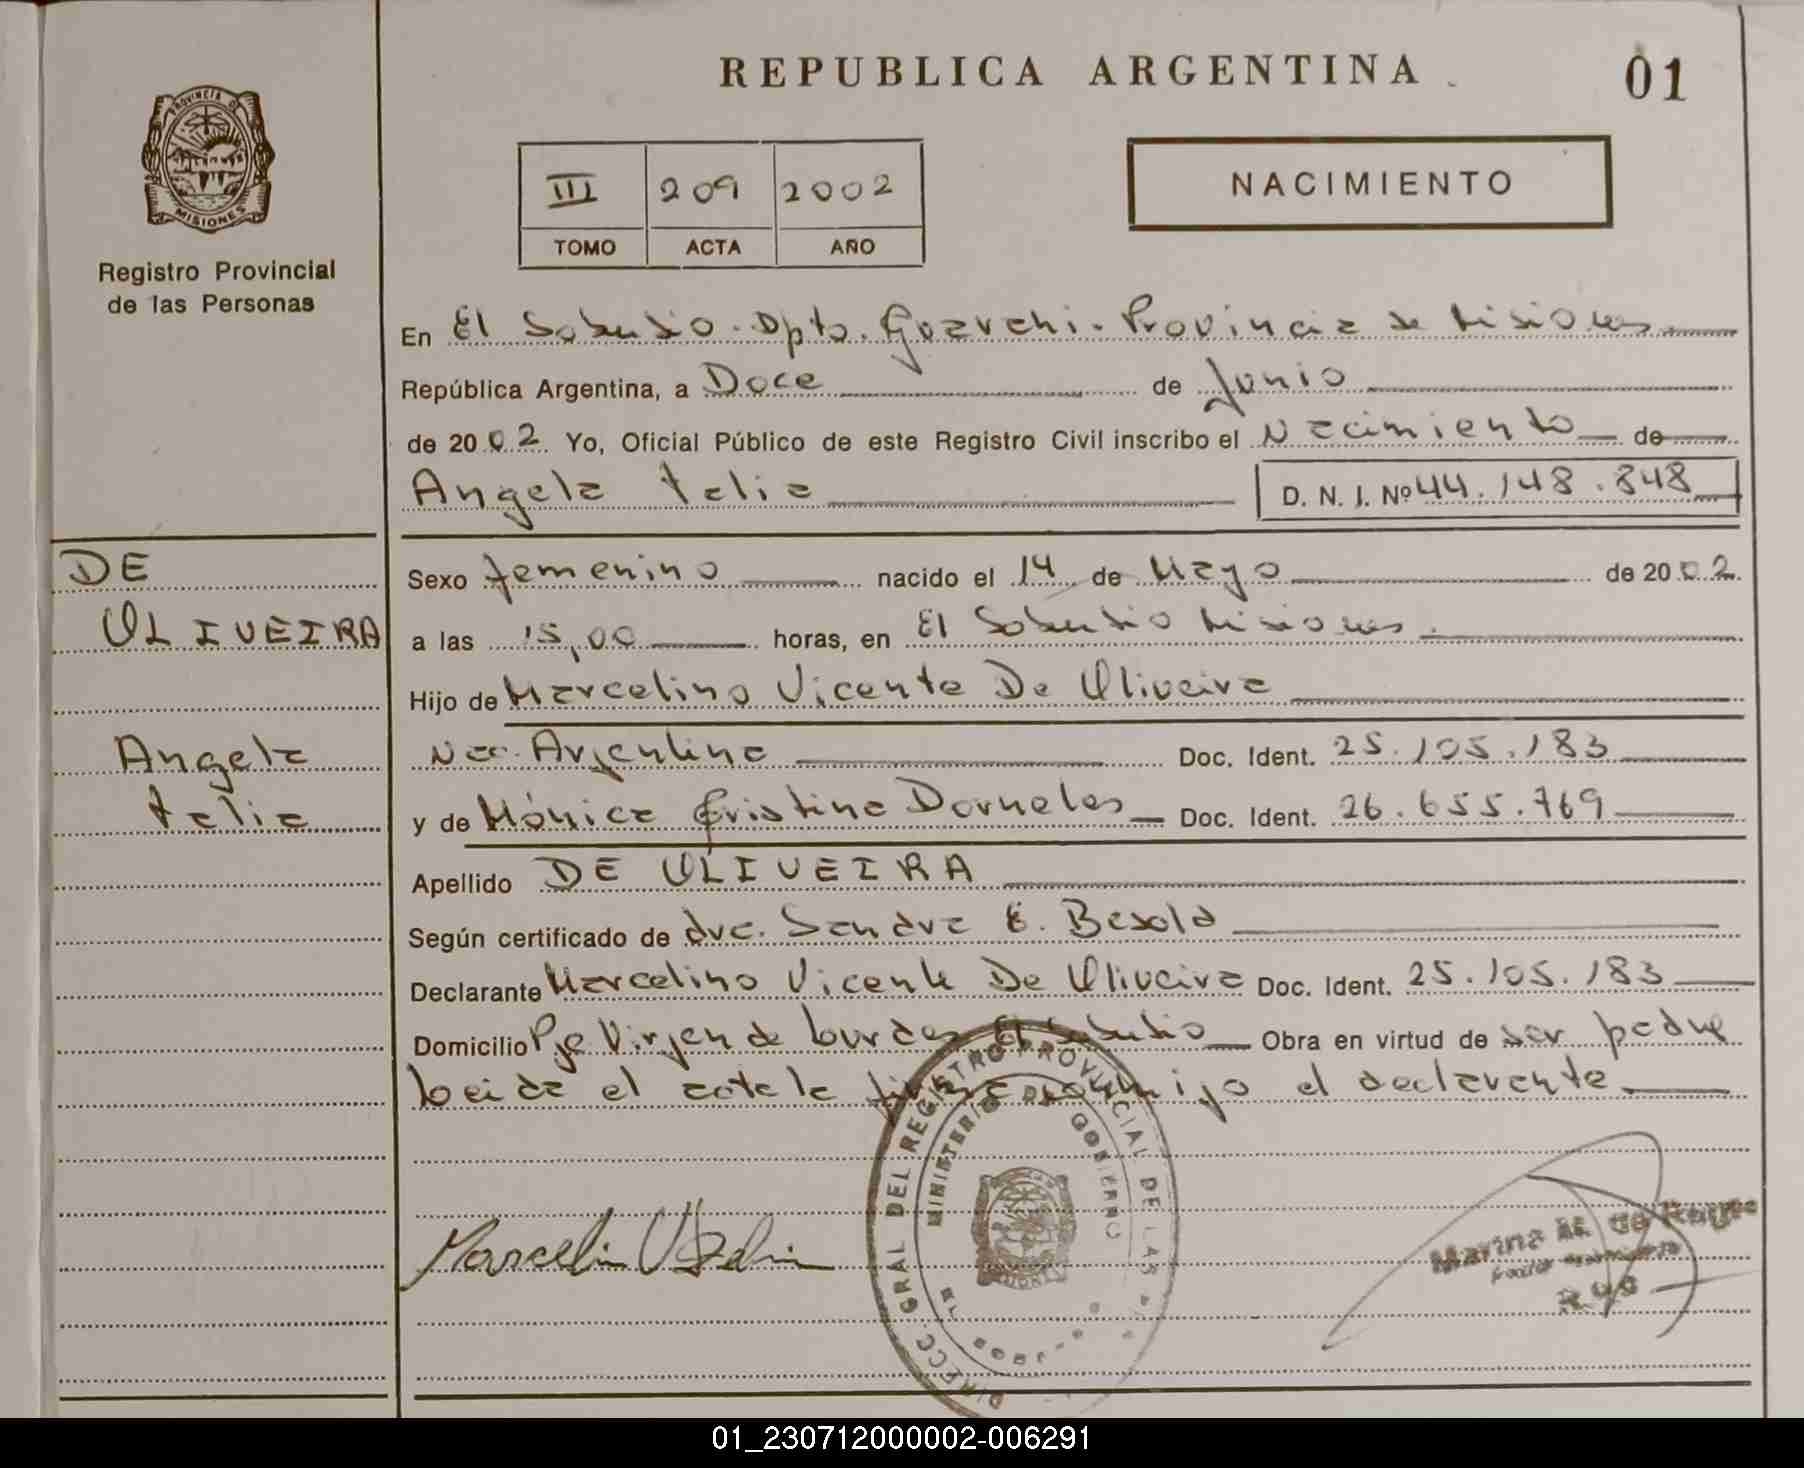 REPUBLICA ARGENTINA
01
PROVINCIA DE
MISIONES
Registro Provincial
de las Personas
III 209 2002
TOMO ACTA AÑO
NACIMIENTO
En El Soberbio. Dpto. Guarani. Provincia de Misiones
República Argentina, a Doce de Junio
de 2002 Yo, Oficial Público de este Registro Civil inscribo el Nacimiento de
Angela Talia D. N. I. Nº 44.148.848
DE
OLIVEIRA
Angela
Talia
Sexo femenino nacido el 14 de Mayo de 2002
a las 15,00 horas, en El Soberbio Misiones.
Hijo de Marcelino Vicente De Oliveira
Nac. Argentina Doc. Ident. 25.105.183
y de Mónica Cristina Dorneles Doc. Ident. 26.655.769
Apellido DE OLIVEIRA
Según certificado de dra. Sandra E. Besold
Declarante Marcelino Vicente De Oliveira Doc. Ident. 25.105.183
Domicilio Pje Virjen de Lourdes El Soberbio Obra en virtud de ser padre
Leida el acta la firma conmigo el declarante
DIRECC. GRAL DEL REGISTRO PROVINCIAL DE LAS
MINISTERIO DE GOBIERNO
Marcelin
Marina
01_230712000002-006291